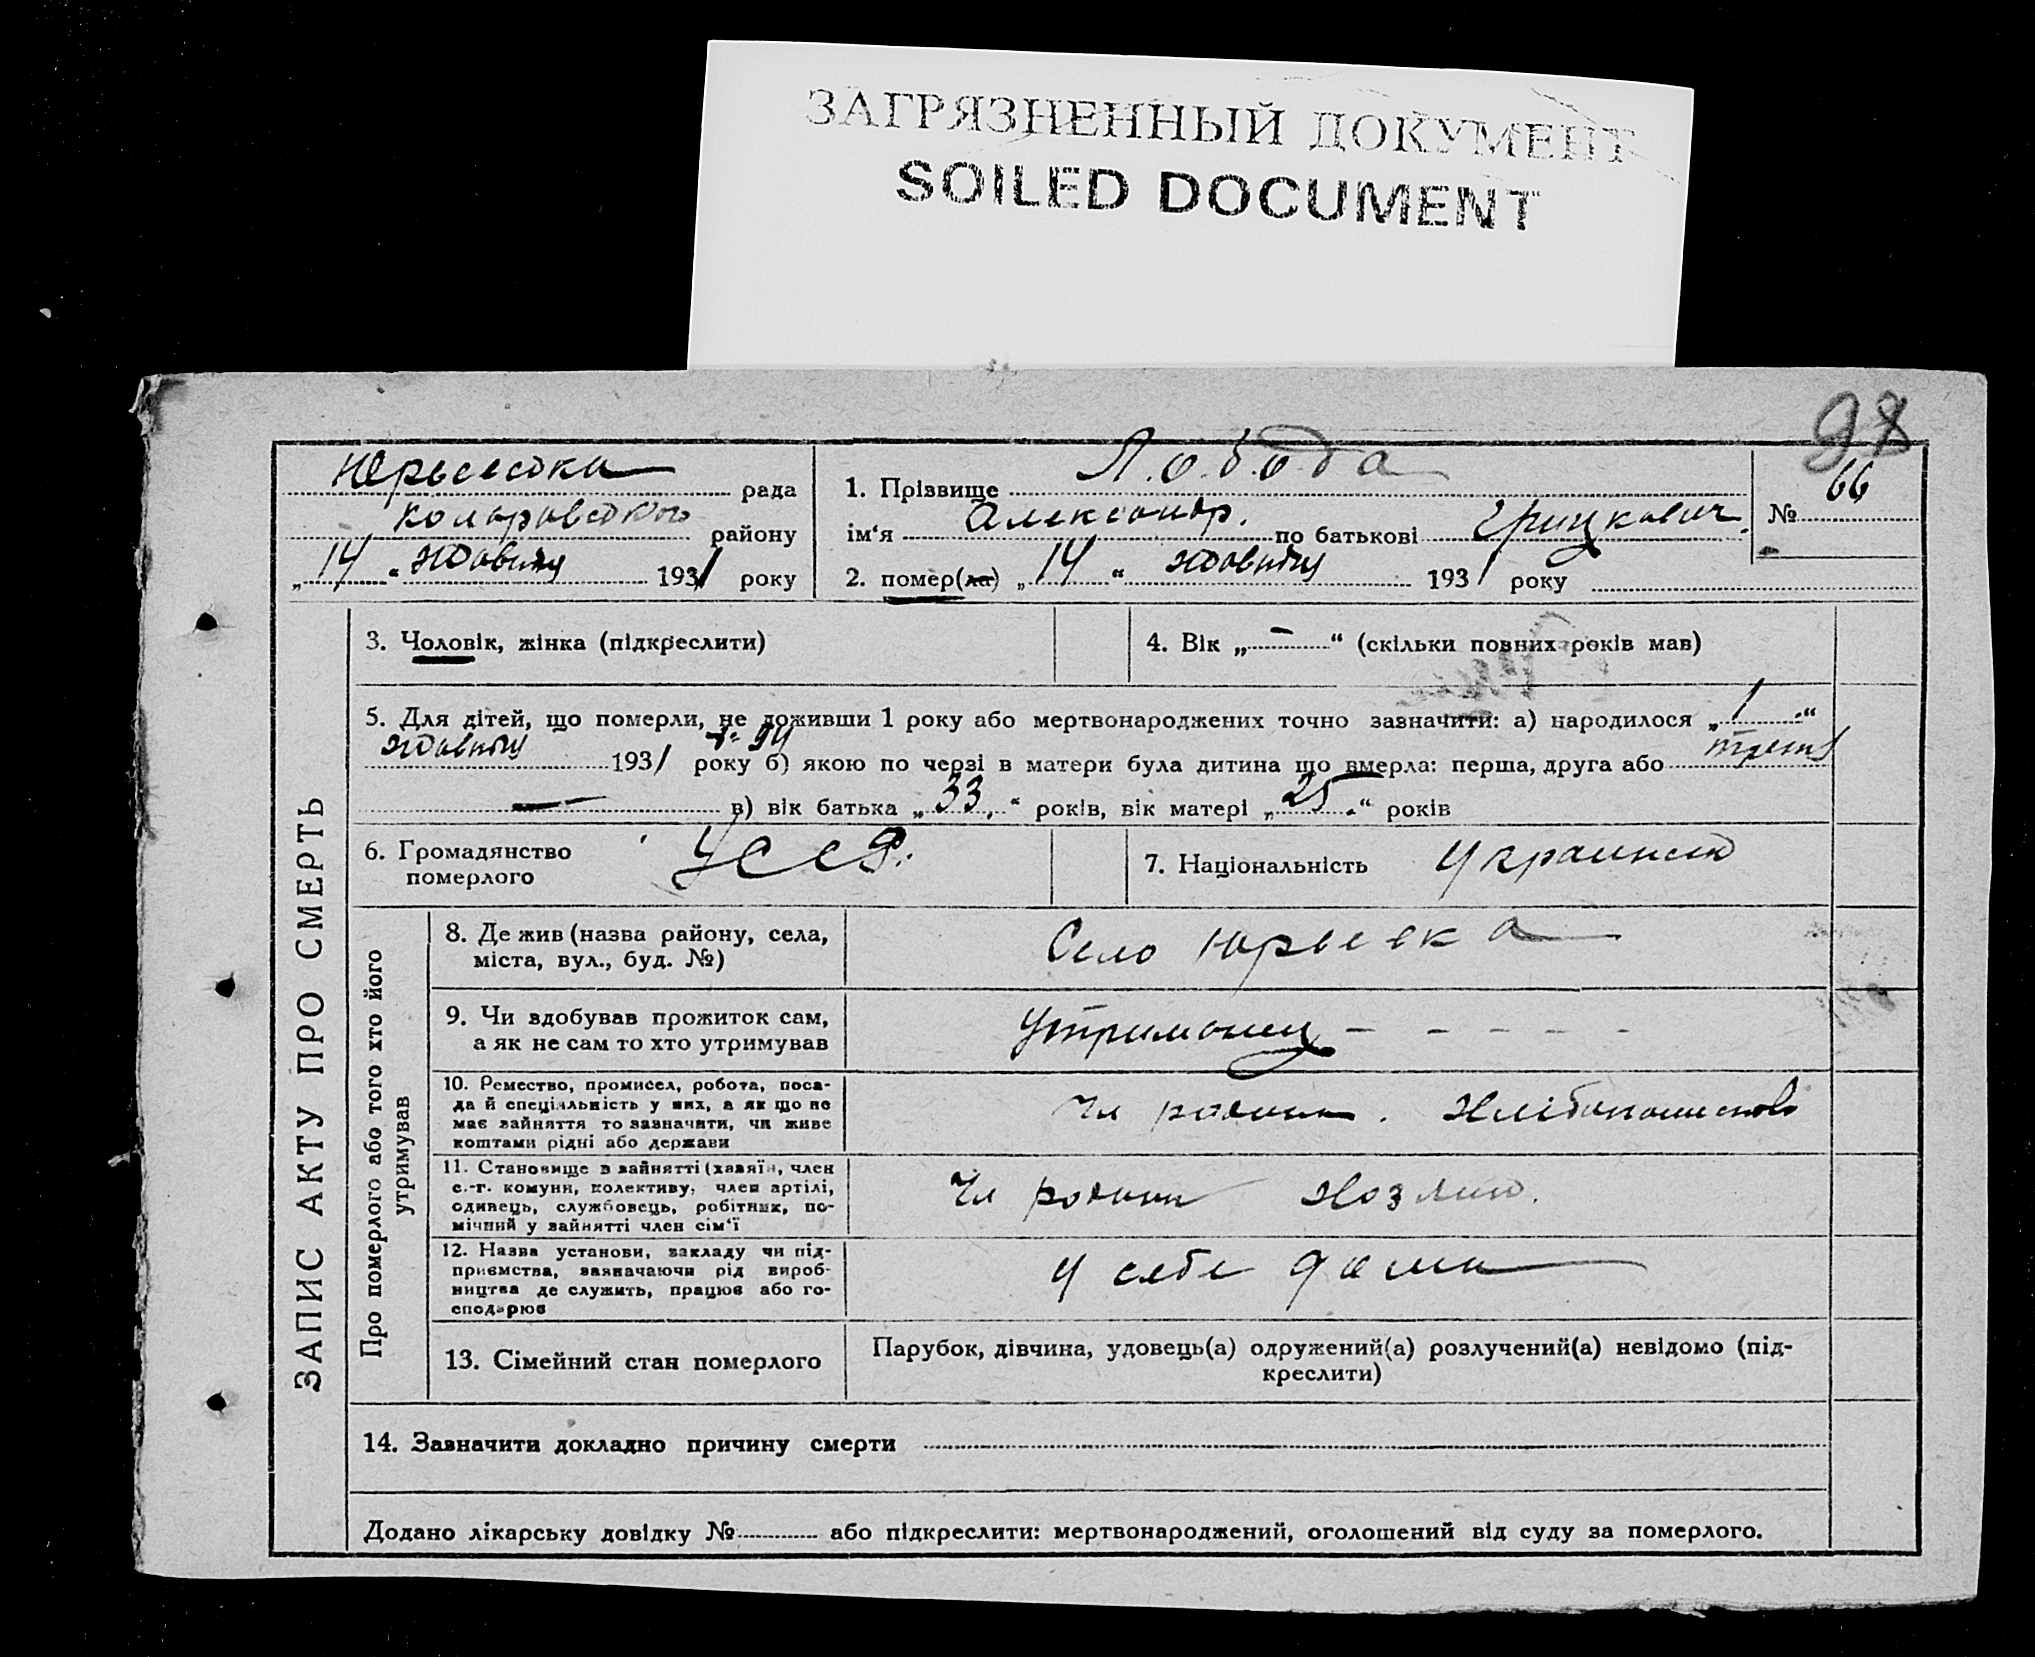 ЗАГРЯЗНЕННЫЙ ДОКУМЕНТ
SOILED DOCUMENT
98
рада
району
„14“ жовтня 1931 року
1. Прізвище Лобода
ім‘я Александр. по батькові Грицкович.
2. помер(ла) „14“ жовтня 1931 року
№ 66
ЗАПИС АКТУ ПРО СМЕРТЬ
3. Чоловік, жінка (підкреслити)
4. Вік „–“ (скільки повних років мав)
5. Для дітей, що померли, не доживши 1 року або мертвонароджених точно зазначити: а) народилося „1“
жовтня 1931 року б) якою по черзі в матери була дитина що вмерла: перша, друга або
№ 94
— в) вік батька „33“ років, вік матері „25“ років
6. Громадянство померлого УССР.
7. Національність
Про померлого або того хто його утримував
8. Де жив (назва району, села,
міста, вул., буд. №)
Село Юрьевка
9. Чи здобував прожиток сам,
а як не сам то хто утримував
Утриманец – – – – –
10. Ремество, промисел, робота, поса-
да й спеціяльність у них, а як що не
має зайняття то зазначити, чи живе
коштами рідні або держави
Чл родини.
11. Становище в зайнятті (хазяїн, член
с.-г. комуни, колективу, член артілі,
одинець, службовець, робітник, по-
мічний у зайнятті член сім‘ї
Чл родини
12. Назва установи, закладу чи під-
приємства, зазначаючи рід вироб-
ництва де служить, працює або го-
сподарює
У себе дома
13. Сімейний стан померлого
Парубок, дівчина, удовець(а) одружений(а) розлучений(а) невідомо (під-
креслити)
14. Зазначити докладно причину смерти
Додано лікарську довідку № або підкреслити: мертвонароджений, оголошений від суду за померлого.